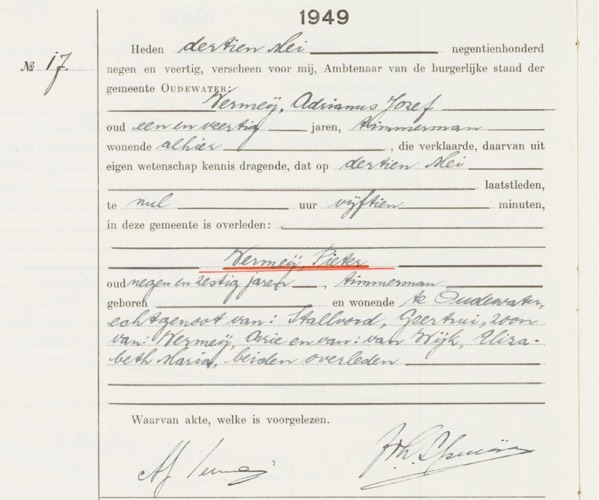 1949
Heden dertien Mei negentienhonderd
№ 17.
negen en veertig, verscheen voor mij, Ambtenaar van de burgerlijke stand der
gemeente OUDEWATER:
Vermeÿ, Adrianus Jozef
oud een en veertig jaren, timmerman
wonende alhier, die verklaarde, daarvan uit
eigen wetenschap kennis dragende, dat op dertien Mei
laatstleden,
te nul uur vijftien minuten,
in deze gemeente is overleden:
Vermeÿ, Pieter
oud negen en zestig jaren, timmerman
geboren en wonende te Oudewater,
echtgenoot van: Stallvord, Geertrui, zoon
van: Vermeÿ, Arie en van: van Wijk, Eliza-
beth Maria, beiden overleden
Waarvan akte, welke is voorgelezen.